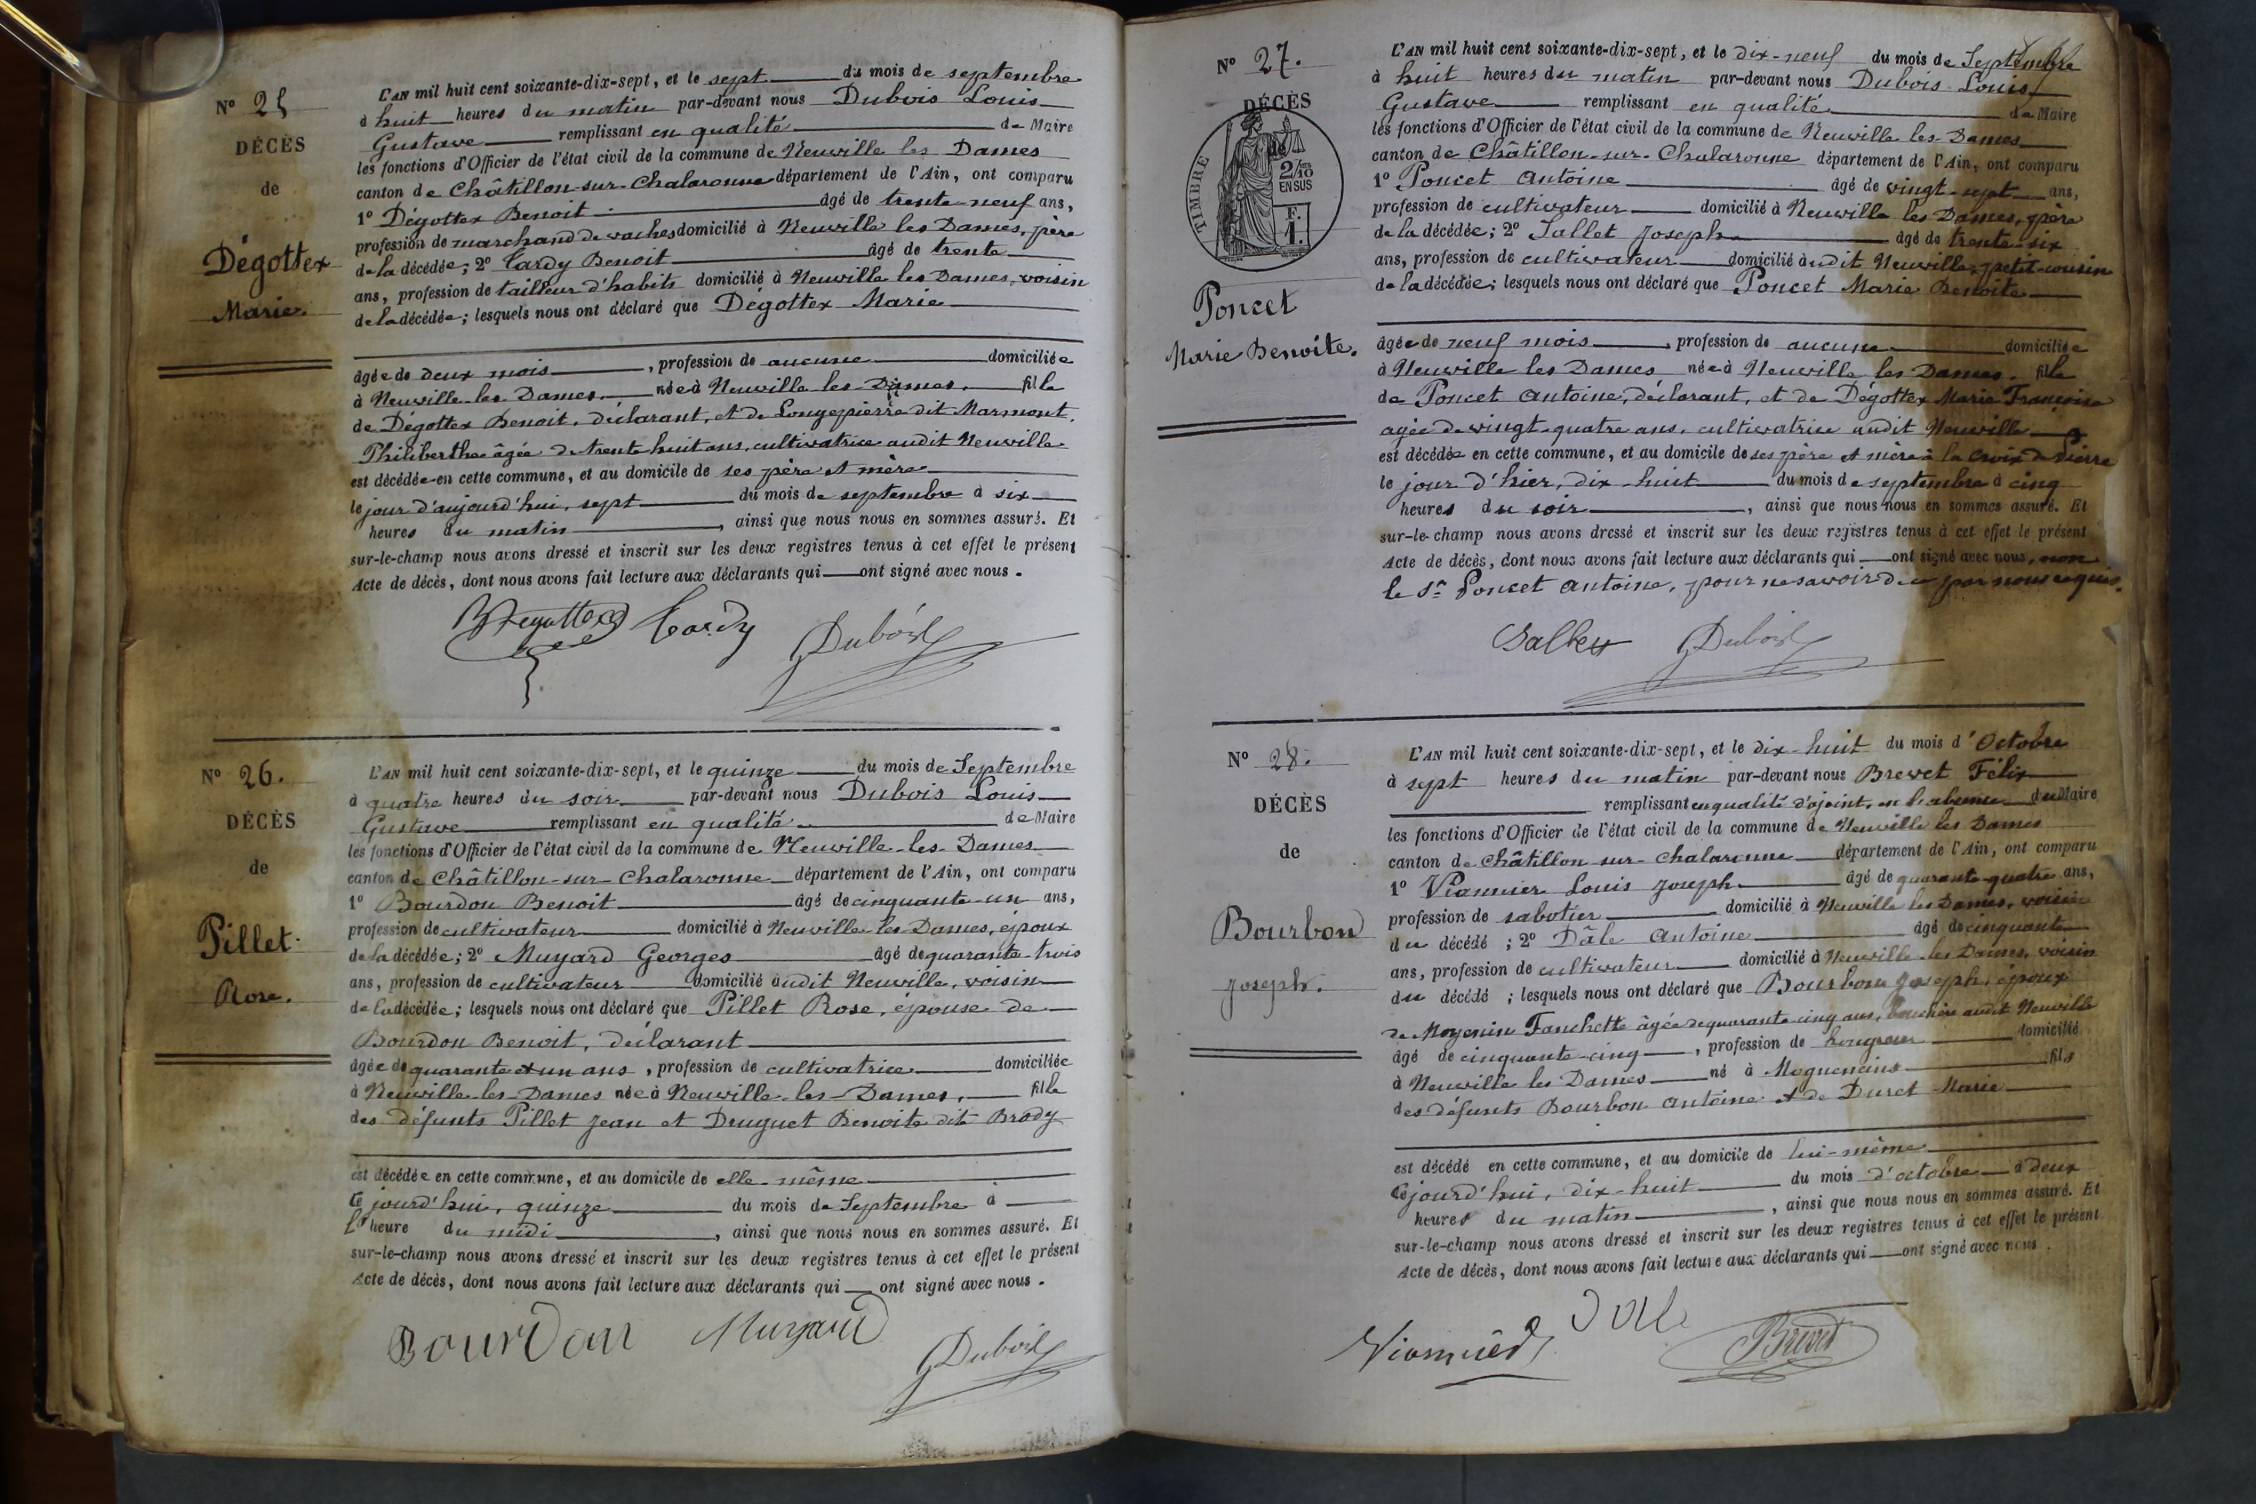 N° 25
DÉCÈS
de
Dégottex
Marie.
L'AN mil huit cent soixante-dix-sept, et le sept du mois de septembre
à huit heures du matin par-devant nous Dubois Louis
Gustave remplissant en qualité de Maire
les fonctions d'Officier de l'état civil de la commune de Neuville les Dames
canton de Châtillon-sur-Chalaronne département de l'Ain, ont comparu
1° Dégottex Benoit âgé de trente-neuf ans,
profession de marchand de vaches domicilié à Neuville les Dames, père
de la décédée; 2° Cardy Benoit âgé de trente
ans, profession de tailleur d'habits domicilié à Neuville les Dames, voisin
de la décédée; lesquels nous ont déclaré que Dégottex Marie
âgée de deux mois, profession de aucune domiciliée
à Neuville les Dames née à Neuville les Dames. fille
de Dégottex Benoit, déclarant, et de Longepierre dit Marmont,
Philiberthe âgée de trente huit ans, cultivatrice audit Neuville
est décédée en cette commune, et au domicile de ses père et mère
le jour d'aujourd'hui, sept du mois de septembre à six
heures du matin, ainsi que nous nous en sommes assuré. Et
sur-le-champ nous avons dressé et inscrit sur les deux registres tenus à cet effet le présent
Acte de décès, dont nous avons fait lecture aux déclarants qui ont signé avec nous.
BDegottex Cardy GDubois
N° 26.
DÉCÈS
de
Pillet
Rose.
L'AN mil huit cent soixante-dix-sept, et le quinze du mois de Septembre
à quatre heures du soir par-devant nous Dubois Louis
Gustave remplissant en qualité de Maire
les fonctions d'Officier de l'état civil de la commune de Neuville-les-Dames
canton de Châtillon-sur-Chalaronne département de l'Ain, ont comparu
1° Bourdon Benoit âgé de cinquante-un ans,
profession de cultivateur domicilié à Neuville les Dames, époux
de la décédée; 2° Muyard Georges âgé de quarante-trois
ans, profession de cultivateur domicilié audit Neuville, voisin
de la décédée; lesquels nous ont déclaré que Pillet Rose, épouse de
Bourdon Benoit, déclarant
âgée de quarante et un ans, profession de cultivatrice domiciliée
à Neuville-les-Dames née à Neuville-les-Dames, fille
des défunts Pillet Jean et Druguet Benoite dit Brody
est décédée en cette commune, et au domicile de elle-même
ce jourd'hui, quinze du mois de Septembre à
l'heure du midi, ainsi que nous nous en sommes assuré. Et
sur-le-champ nous avons dressé et inscrit sur les deux registres tenus à cet effet le présent
Acte de décès, dont nous avons fait lecture aux déclarants qui ont signé avec nous.
Bourdon Muyard GDubois
N° 27.
DÉCÈS
de
TIMBRE
2/10
EN SUS
F.
1.
Poncet
Marie Benoite.
L'AN mil huit cent soixante-dix-sept, et le dix-neuf du mois de Septembre
à huit heures du matin par-devant nous Dubois Louis
Gustave remplissant en qualité de Maire
les fonctions d'Officier de l'état civil de la commune de Neuville les Dames
canton de Châtillon-sur-Chalaronne département de l'Ain, ont comparu
1° Poncet Antoine âgé de vingt-sept ans,
profession de cultivateur domicilié à Neuville les Dames, père
de la décédée; 2° Sallet Joseph âgé de trente-six
ans, profession de cultivateur domicilié audit Neuville, petit-cousin
de la décédée; lesquels nous ont déclaré que Poncet Marie Benoite
âgée de neuf mois, profession de aucune domiciliée
à Neuville les Dames née à Neuville les Dames. fille
de Poncet Antoine, déclarant, et de Dégottex Marie Françoise
agée de vingt-quatre ans, cultivatrice audit Neuville
est décédée en cette commune, et au domicile de ses père et mère à la Croix de Pierre
le jour d'hier, dix-huit du mois de septembre à cinq
heures du soir, ainsi que nous nous en sommes assuré. Et
sur-le-champ nous avons dressé et inscrit sur les deux registres tenus à cet effet le présent
Acte de décès, dont nous avons fait lecture aux déclarants qui ont signé avec nous, non
le Sr Poncet Antoine, pour ne savoir de ce par nous requis.
Sallet GDubois
N° 28.
DÉCÈS
de
Bourbon
Joseph.
L'AN mil huit cent soixante-dix-sept, et le dix-huit du mois d'Octobre
à sept heures du matin par-devant nous Brevet Félix
remplissant en qualité d'ajoint, en l'absence du Maire
les fonctions d'Officier de l'état civil de la commune de Neuville les Dames
canton de Châtillon-sur-Chalaronne département de l'Ain, ont comparu
1° Vionnier Louis Joseph âgé de quarante-quatre ans,
profession de sabotier domicilié à Neuville les Dames, voisin
du décédé; 2° Dâle Antoine âgé de cinquante
ans, profession de cultivateur domicilié à Neuville-les Dames, voisin
du décédé; lesquels nous ont déclaré que Bourbon Joseph, époux
de Moyenin Fanchette âgée de quarante-cinq ans, bouchère audit Neuville
âgé de cinquante-cinq, profession de hongreur domicilié
à Neuville les Dames né à Mogneneins fils
des défunts Bourbon Antoine et de Duret Marie
est décédé en cette commune, et au domicile de lui-même
ce jourd'hui, dix-huit du mois d'octobre à deux
heures du matin, ainsi que nous nous en sommes assuré. Et
sur-le-champ nous avons dressé et inscrit sur les deux registres tenus à cet effet le présent
Acte de décès, dont nous avons fait lecture aux déclarants qui ont signé avec nous.
Dale Brevet